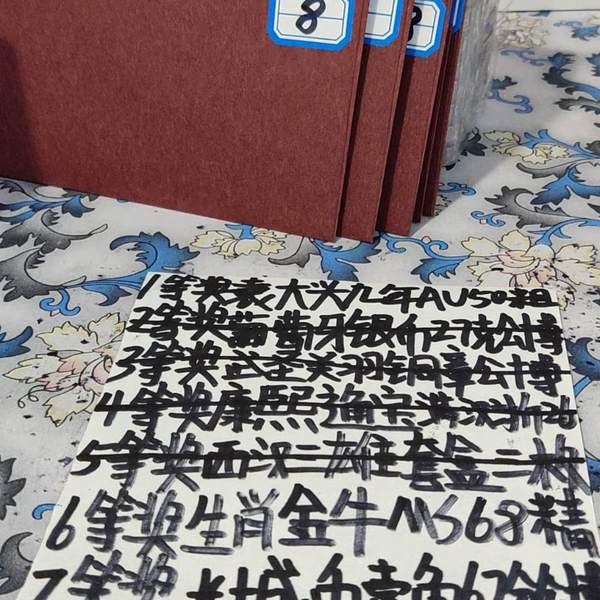 8
8
1等奖袁大头九年AU50粗
2等奖葡萄牙银币27克公博
3等奖武圣关羽铜章公博
4等奖康熙通宝满汉浙26
5等奖西汉三雄套盒三枚
6等奖生肖金牛MS68精
7等奖长城币壹角67公博